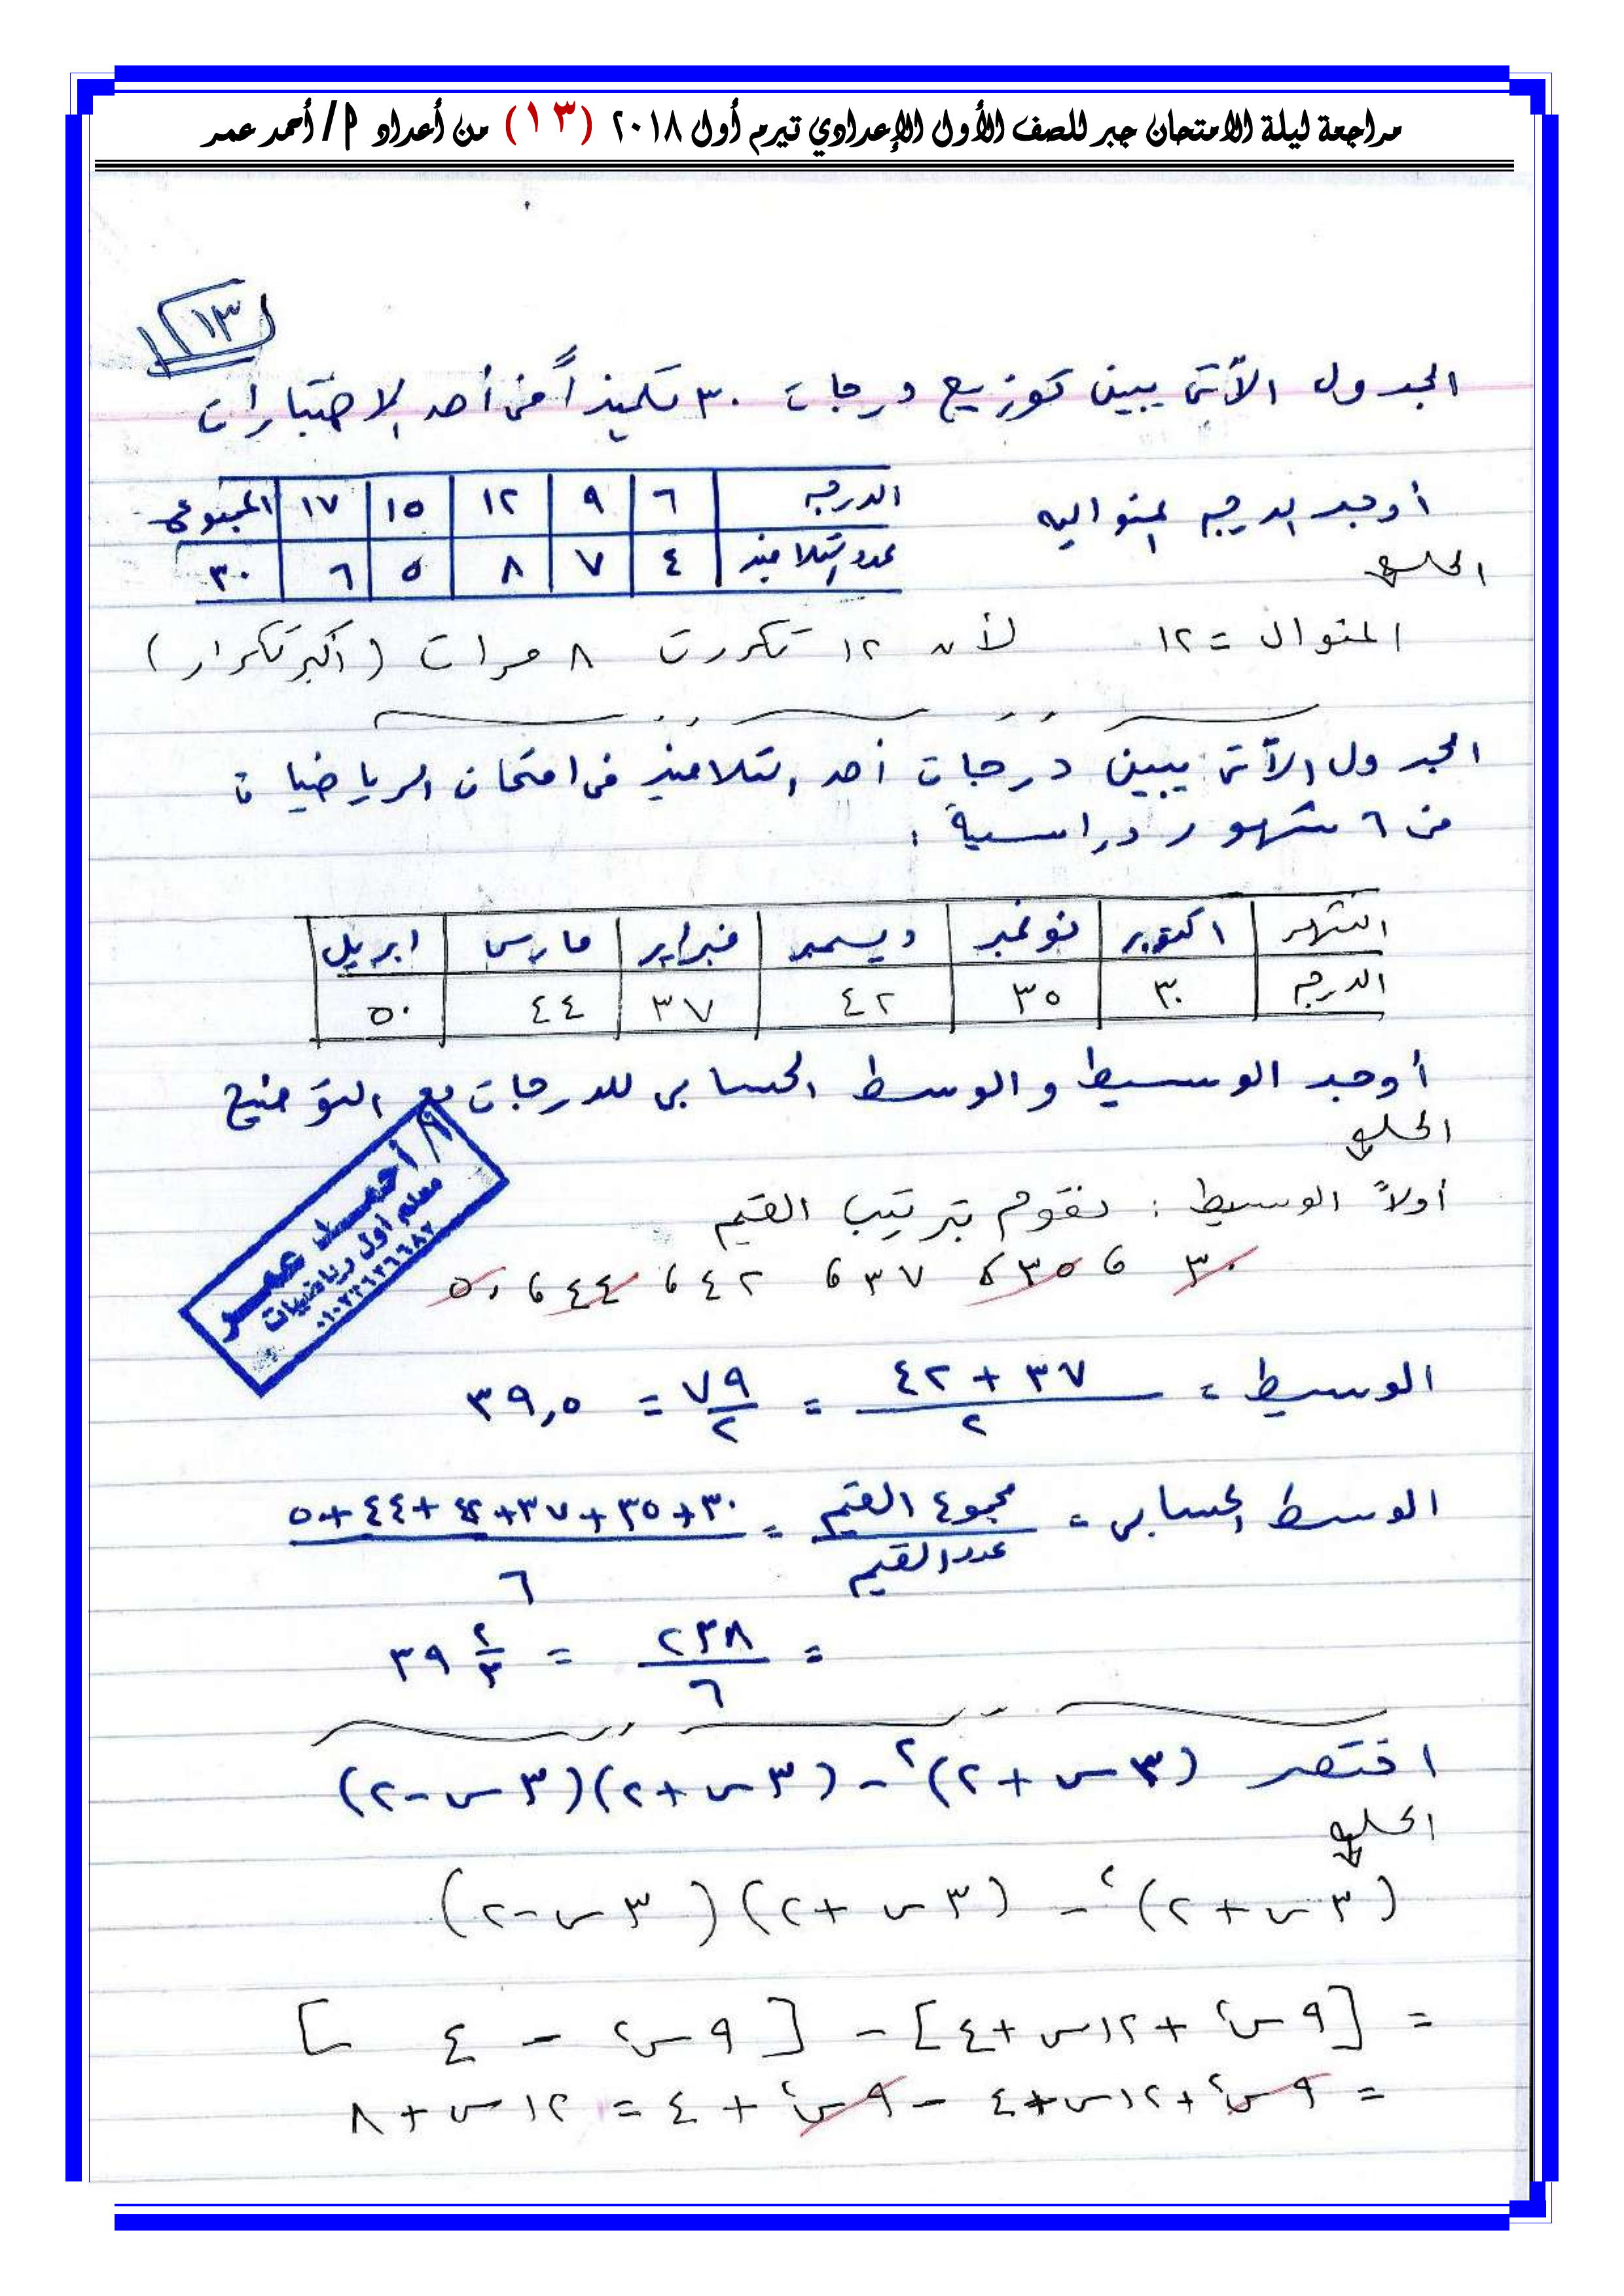 مراجعة ليلة الامتحان جبر للصف الأول الإعدادي تيرم أول ٢٠١٨ (١٣) من أعداد م/ أحمد عمر
١٣
الجدول الآتى يبين توزيع درجات ٣٠ تلميذاً فى أحد الاختبارات
الدرجه | ٦ | ٩ | ١٢ | ١٥ | ١٧ | المجموع
عدد التلاميذ | ٤ | ٧ | ٨ | ٥ | ٦ | ٣٠
أوجد الدرجه المنواليه
الحل
المنوال = ١٢ لأن ١٢ تكررت ٨ مرات (أكبر تكرار)
الجدول الآتى يبين درجات أحد التلاميذ فى امتحان الرياضيات
فى ٦ شهور دراسية :
الشهر | اكتوبر | نوفمبر | ديسمبر | فبراير | مارس | ابريل
الدرجه | ٣٠ | ٣٥ | ٤٢ | ٣٧ | ٤٤ | ٥٠
أوجد الوسيط والوسط الحسابى للدرجات مع التوضيح
الحل
م/ أحمد عمر
معلم أول رياضيات
أولاً الوسيط : نقوم بترتيب القيم
٣٠ ، ٣٥ ، ٣٧ ، ٤٢ ، ٤٤ ، ٥٠
الوسيط = (٣٧ + ٤٢)/٢ = ٧٩/٢ = ٣٩,٥
الوسط الحسابى = مجموع القيم/عدد القيم = (٣٠+٣٥+٣٧+٤٢+٤٤+٥٠)/٦
= ٢٣٨/٦ = ٣٩ ٢/٣
اختصر (٣س+٢)² - (٣س+٢)(٣س-٢)
الحل
(٣س+٢)² - (٣س+٢)(٣س-٢)
= [٩س² + ١٢س+٤] - [٩س² - ٤]
= ٩س²+١٢س+٤ - ٩س² + ٤ = ١٢س+٨